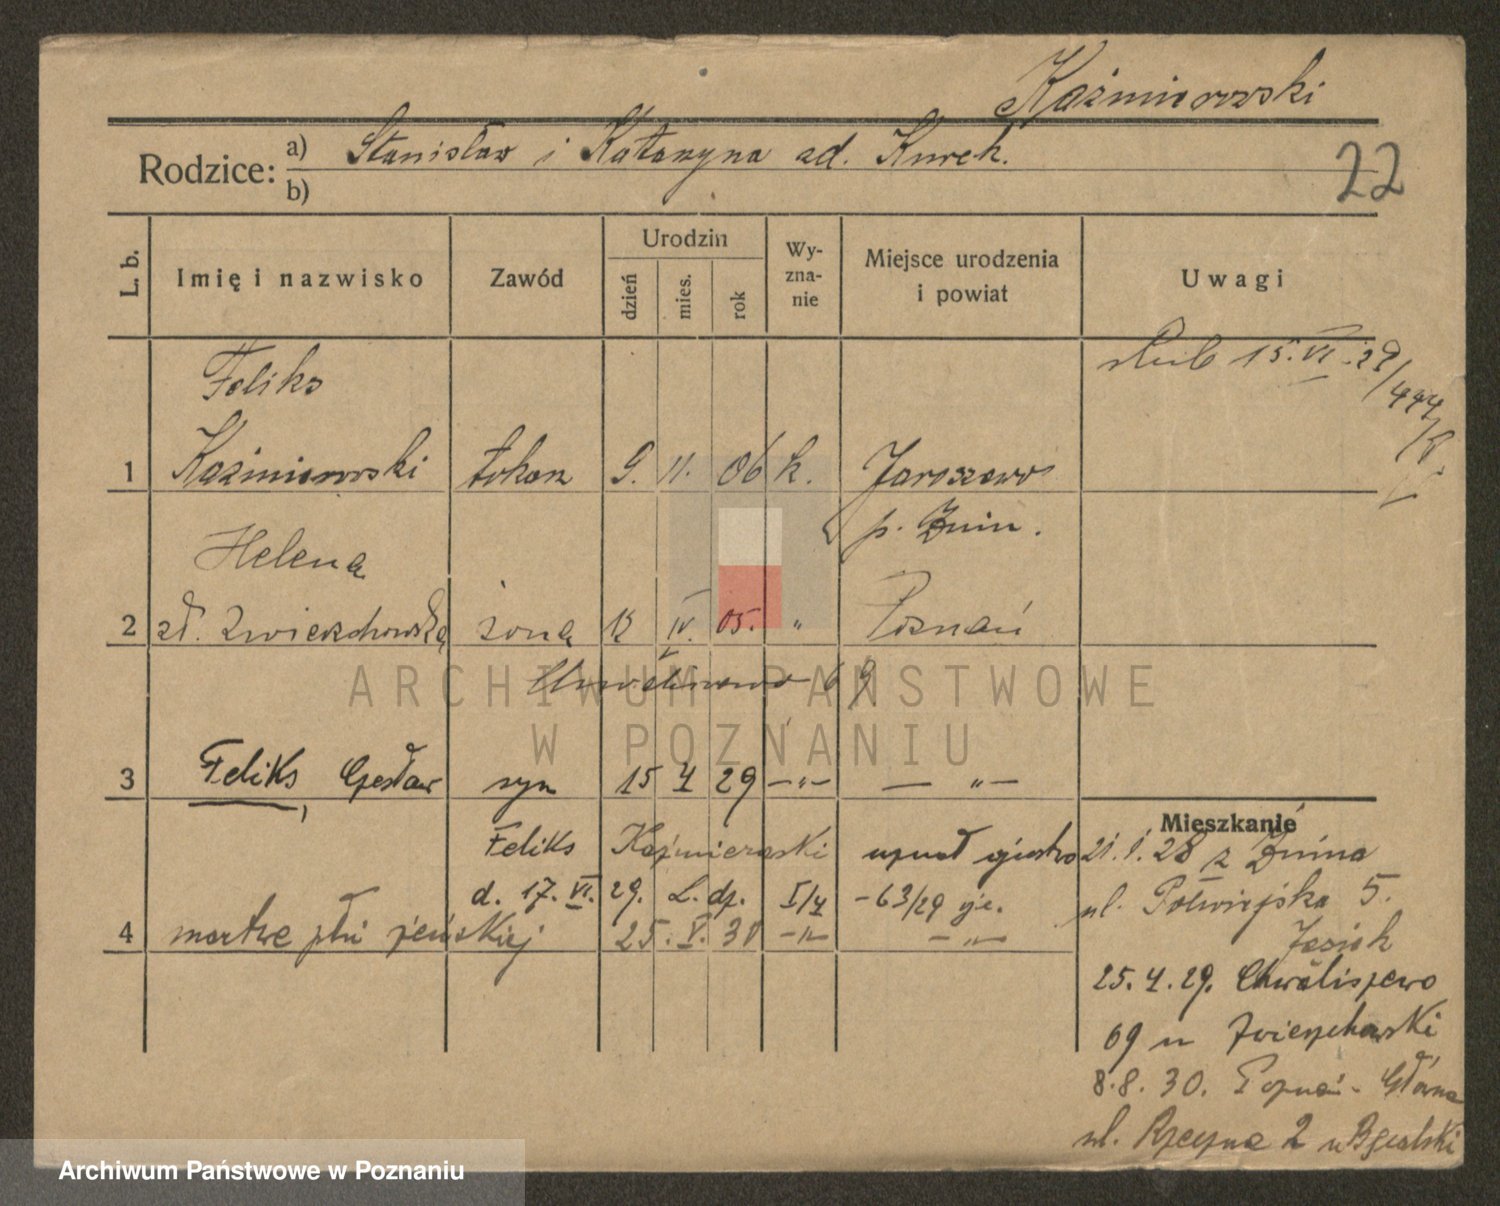 Kaźmierowski
Rodzice: a) Stanisław i Katarzyna zd. Kurek.
b)
22
L. b. Imię i nazwisko Zawód Urodzin dzień mies. rok Wyznanie Miejsce urodzenia i powiat Uwagi
ślub 15. VI. 29/444/
Feliks
1 Kaźmierowski tokarz 9. 11. 06 k. Jaroszewo
p. Żnin.
Helena
2 zd. Zwierzchowska żona IV. 05. " Poznań
Chwaliszewo 69
3 Feliks, Czesław syn 15 29 -"- -"-
Feliks Kaźmierowski
d. 17. VI. 29. L. dz. -63/29
4 martwe płci żeńskiej 25. V. 30 -"- -"-
Mieszkanie
21. 1. 28 z Żnina
ul. Półwiejska 5.
Jasiek
25. 4. 29. Chwaliszewo
69 u Zwierzchowski
8. 8. 30. Poznań - Główna
ul. 2 u
ARCHIWUM PAŃSTWOWE
W POZNANIU
Archiwum Państwowe w Poznaniu